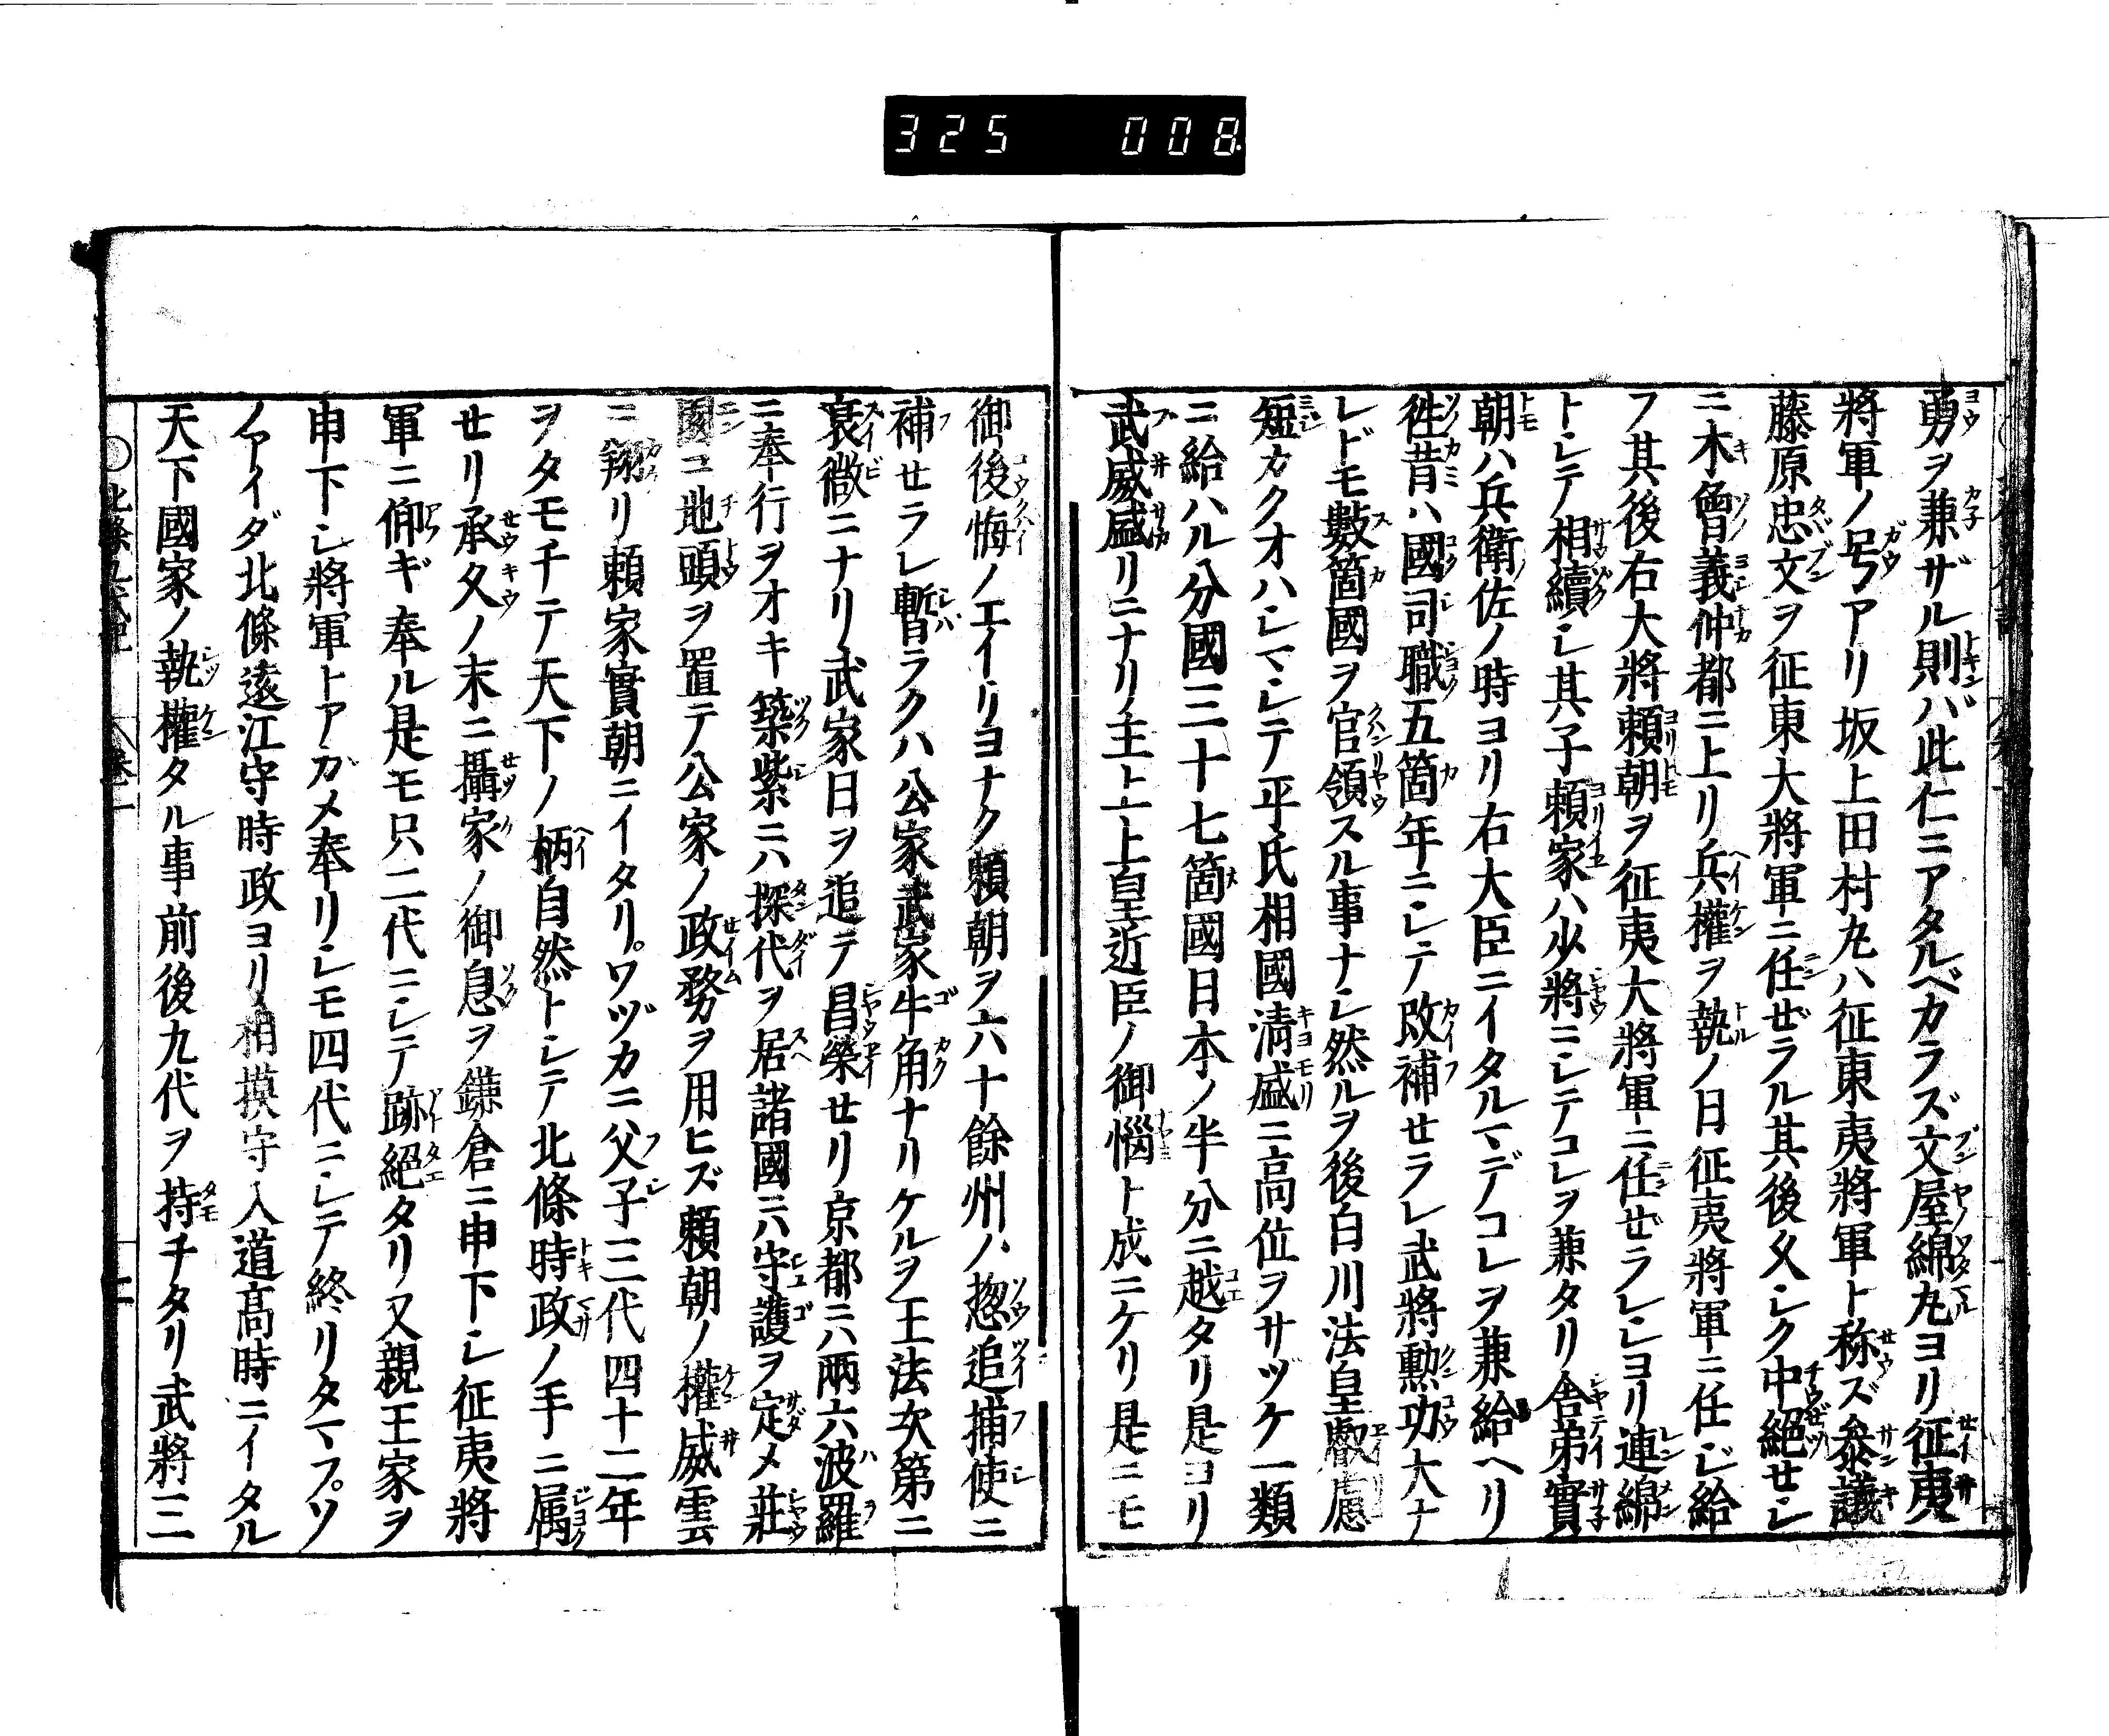 325 008
勇ヲ兼ザル則ハ此仁ニアタルベカラズ文屋綿丸ヨリ征夷
將軍ノ号アリ坂上田村丸ハ征東夷將軍ト称ズ叅議
藤原忠文ヲ征東大將軍ニ任ぜラル其後久シク中絶せシ
ニ木曾義仲都ニ上リ兵權ヲ執ノ日征夷將軍ニ任ジ給
フ其後右大將頼朝ヲ征夷大將軍ニ任ぜラレシヨリ連綿
トシテ相續シ其子頼家ハ少將ニシテコレヲ兼タリ舎弟實
朝ハ兵衛佐ノ時ヨリ右大臣ニイタルマデノコレヲ兼給ヘリ
徃昔ハ國司職五箇年ニシテ改補せラレ武將勲功大ナ
レドモ數箇國ヲ官領スル事ナシ然ルヲ後白川法皇叡慮
短カクオハシマシテ平氏相國清盛ニ高位ヲサヅケ一類
ニ給ハル分國三十七箇國日本ノ半分ニ越タリ是ヨリ
武威盛リニナリ主上上皇近臣ノ御惱ト成ニケリ是ニモ
御後悔ノエイリヨナク頼朝ヲ六十餘州ノ惣追捕使ニ
補せラレ暫ラクハ公家武家牛角ナリケルヲ王法次第ニ
衰微ニナリ武家日ヲ追テ昌榮せリ京都ニハ兩六波羅
ニ奉行ヲオキ築紫ニハ探代ヲ居諸國ニハ守護ヲ定メ莊
園ニ地頭ヲ置テ公家ノ政務ヲ用ヒズ頼朝ノ權威雲
ニ翔リ頼家實朝ニイタリワヅカニ父子三代四十二年
ヲタモチテ天下ノ柄自然トシテ北條時政ノ手ニ属
せリ承久ノ末ニ攝家ノ御息ヲ鎌倉ニ申下シ征夷將
軍ニ仰ギ奉ル是モ只二代ニシテ跡絕タリ又親王家ヲ
申下シ將軍トアガメ奉リシモ四代ニシテ終リタマフソ
ノアイダ北條遠江守時政ヨリ相摸守入道高時ニイタル
天下國家ノ執權タル事前後九代ヲ持チタリ武將三